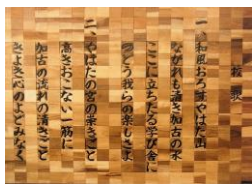 校歌
一、和風おろすやはた山
ながれも清き加古の水
ここに立ちたる学び舎に
つどう我らの楽もさよ
二、やはたの宮の栄きごと
高きおこない一筋に
加古の浅れの清きごと
きよき心のよどみなく